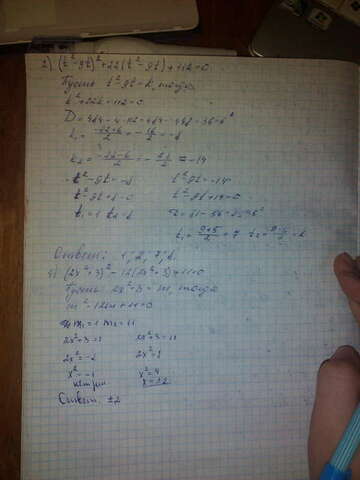 2) (t²-9t)²+22(t²-9t)+112=0
Пусть t²-9t=k, тогда
k²+22k+112=0
D=484-4·112=484-448=36=6²
k₁=-22+6/2=-16/2=-8
k₂=-22-6/2=-28/2=-14
t²-9t=-8 t²-9t=-14
t²-9t+8=0 t²-9t+14=0
t₁=1 t₂=8 D=81-56=25=5²
t₁=9+5/2=7 t₂=9-5/2=2
Ответ: 1, 2, 7, 8.
(2x²+3)²-12(2x²+3)+11=0
Пусть 2x²+3=m, тогда
m²-12m+11=0
m₁=1 m₂=11
2x²+3=1 2x²+3=11
2x²=-2 2x²=8
x²=-1 x²=4
x=±2
Ответ: ±2